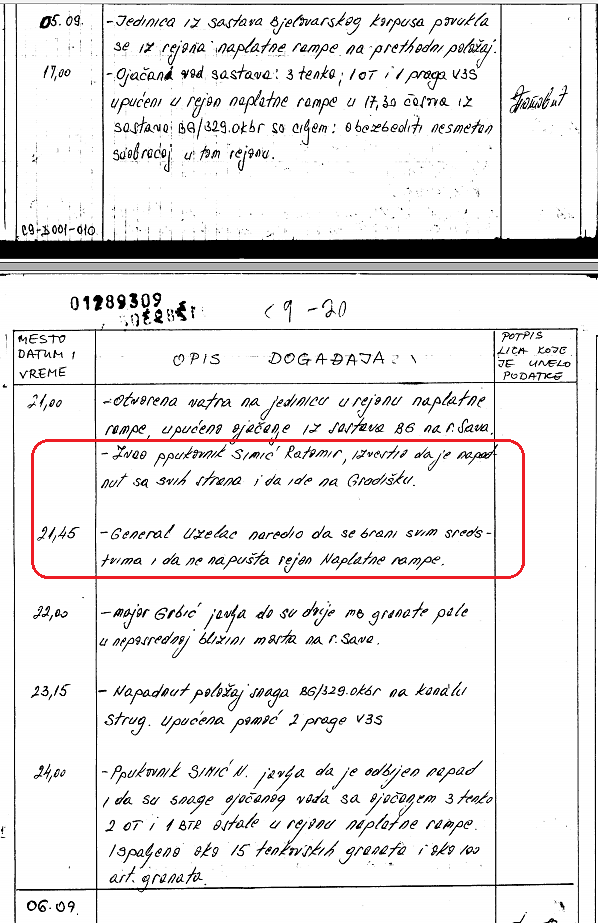 05.09.
- Jedinica iz sastava Bjelovarskog korpusa povukla
se iz rejona naplatne rampe na prethodni položaj.
17,00
- Ojačand vod sastava: 3 tenka; 1 OT i 1 praga V3S
upućeni u rejon naplatne rampe u 17,30 časova iz
sastava BG/329.okbr sa ciljem: obezbediti nesmetan
saobraćaj u tom rejonu.
01289309
C 9 - 20
MESTO
DATUM I
VREME
OPIS DOGAĐAJA
POTPIS
LICA KOJE
JE UNELO
PODATKE
21,00
- Otvorena vatra na jedinicu u rejonu naplatne
rampe, upućeno ojačanje iz sastava BG na r. Sava.
- Zvao ppukovnik SIMIĆ Ratomir, izvestio da je napad-
nut sa svih strana i da ide na Gradišku.
21,45
- General Uzelac naredio da se brani svim sreds-
tvima i da ne napušta rejon Naplatne rampe.
22,00
- major Grbić javlja da su dvije mb granate pale
u neposrednoj blizini mosta na r. Sava.
23,15
- Napadnut položaj snaga BG/329.okbr na kanalu
Strug. Upućena pomoć 2 prage V3S
24,00
- Ppukovnik SIMIĆ N. javlja da je odbijen napad
i da su snage ojačanog voda sa ojačanjem 3 tenka
2 OT i 1 BTR ostale u rejonu naplatne rampe.
Ispaljeno oko 15 tenkovskih granata i oko 100
art. granata.
06.09.